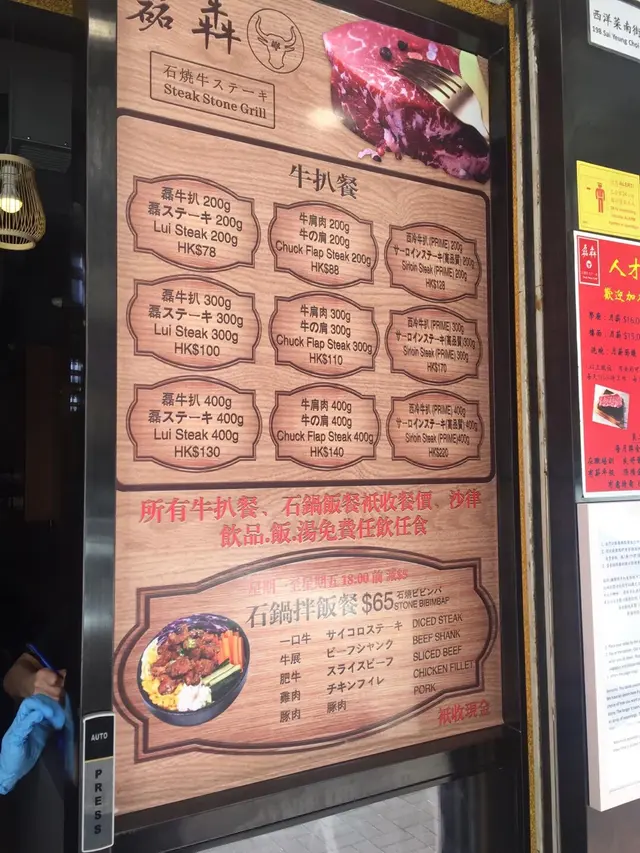 石燒牛ステーキ
Steak Stone Grill
牛扒餐
磊牛扒 200g
磊ステーキ 200g
Lui Steak 200g
HK$78
牛肩肉 200g
牛の肩 200g
Chuck Flap Steak 200g
HK$88
西冷牛扒(PRIME) 200g
サーロインステーキ(高品質) 200g
Sirloin Steak (PRIME) 200g
HK$128
磊牛扒 300g
磊ステーキ 300g
Lui Steak 300g
HK$100
牛肩肉 300g
牛の肩 300g
Chuck Flap Steak 300g
HK$110
西冷牛扒(PRIME) 300g
サーロインステーキ(高品質)300g
Sirloin Steak (PRIME) 300g
HK$170
磊牛扒 400g
磊ステーキ 400g
Lui Steak 400g
HK$130
牛肩肉 400g
牛の肩 400g
Chuck Flap Steak 400g
HK$140
西冷牛扒(PRIME) 400g
サーロインステーキ(高品質)400g
Sirloin Steak (PRIME)400g
HK$220
所有牛扒餐、石鍋飯餐衹收餐價、沙律
飲品.飯.湯免費任飲任食
星期一至星期五 18:00 前 減$5
石鍋拌飯餐 $65 石燒ビビンバ
STONE BIBIMBAP
一口牛 サイコロステーキ DICED STEAK
牛展 ビーフシャンク BEEF SHANK
肥牛 スライスビーフ SLICED BEEF
雞肉 チキンフィレ CHICKEN FILLET
豚肉 豚肉 PORK
衹收現金
AUTO
PRESS
西洋菜南街
人才
歡迎加